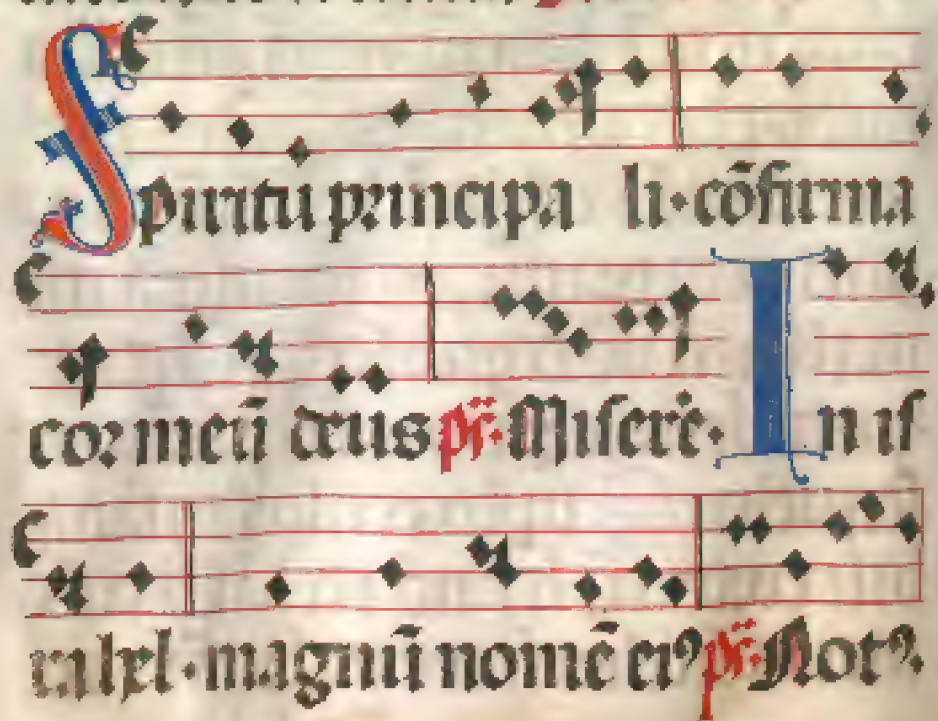 Spiritu principa li · cõfirma
cor meũ deus ps̃ · Miserẽ · In isr
rahel · magnũ nomẽ eiꝰ ps̃ · Notꝰ ·